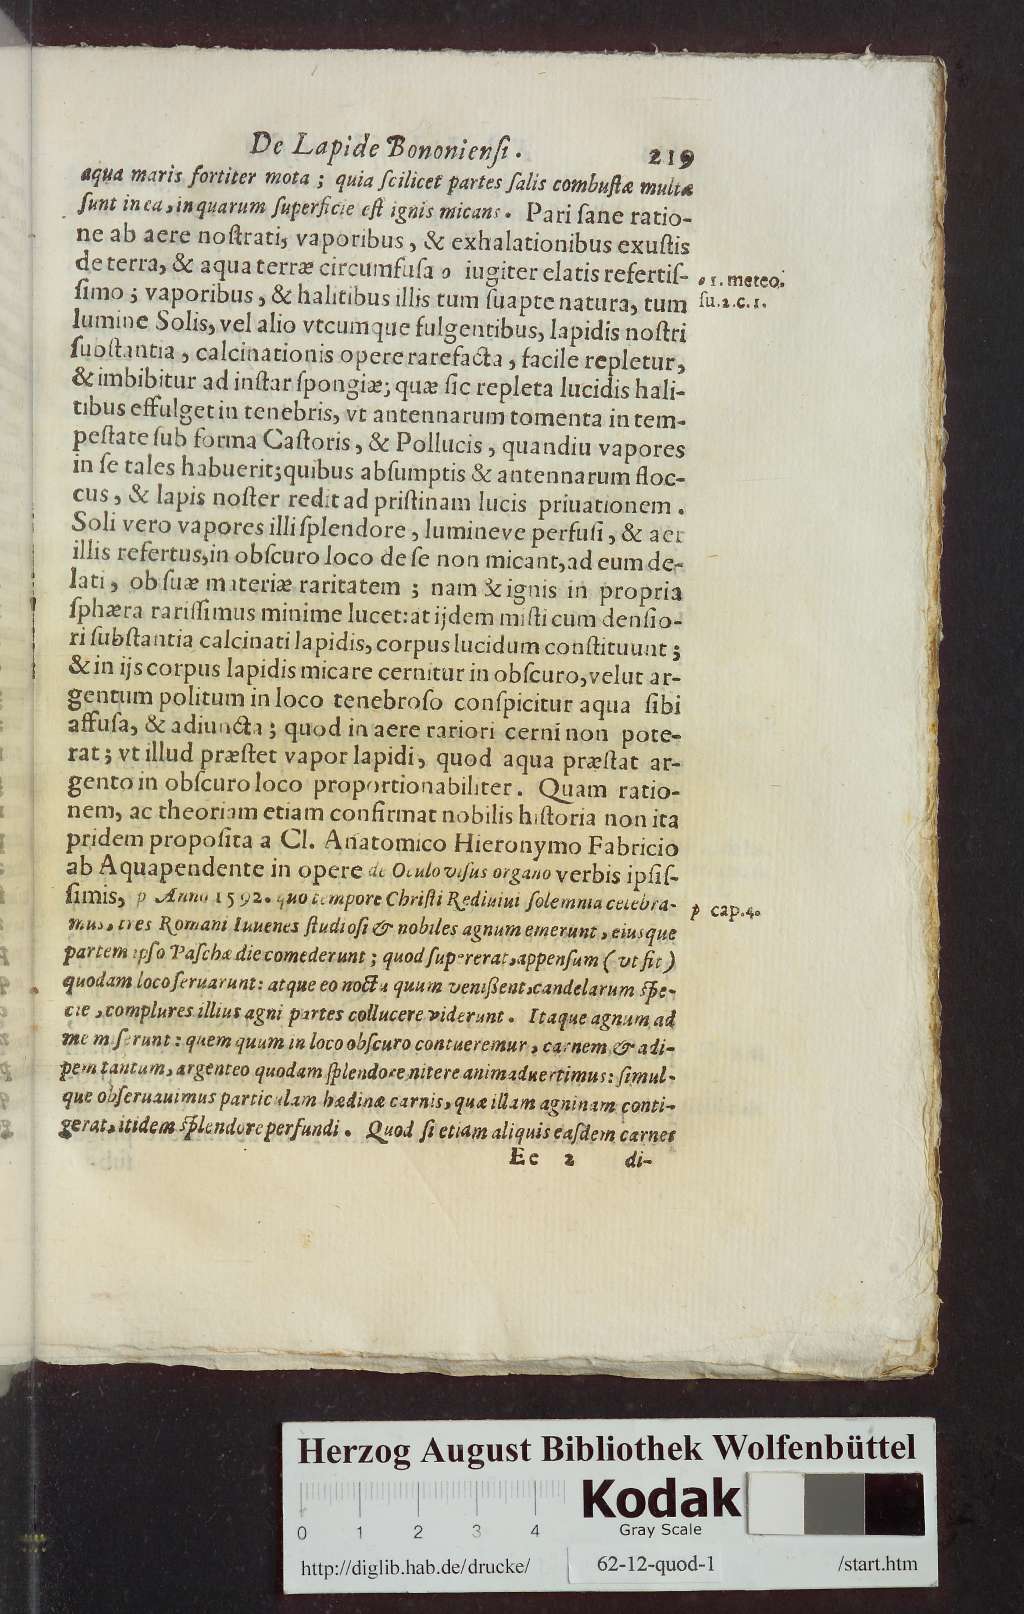 De Lapide Bononienſi. 219
aqua maris fortiter mota; quia ſcilicet partes ſalis combuſtæ multæ
ſunt in ea, in quarum ſuperficie eſt ignis micans. Pari ſane ratio-
ne ab aere noſtrati, vaporibus, & exhalationibus exuſtis
de terra, & aqua terræ circumfuſa o iugiter elatis refertiſ-
o 1. meteo.
ſimo; vaporibus, & halitibus illis tum ſuapte natura, tum
ſu. 2. c. 1.
lumine Solis, vel alio vtcumque fulgentibus, lapidis noſtri
ſubſtantia, calcinationis opere rarefacta, facile repletur,
& imbibitur ad inſtar ſpongiæ; quæ ſic repleta lucidis hali-
tibus effulget in tenebris, vt antennarum tomenta in tem-
peſtate ſub forma Caſtoris, & Pollucis, quandiu vapores
in ſe tales habuerit; quibus abſumptis & antennarum floc-
cus, & lapis noſter redit ad priſtinam lucis priuationem.
Soli vero vapores illi ſplendore, lumineve perfuſi, & aer
illis refertus, in obſcuro loco de ſe non micant, ad eum de-
lati, ob ſuæ materiæ raritatem; nam & ignis in propria
ſphæra rariſſimus minime lucet: at ijdem miſti cum denſio-
ri ſubſtantia calcinati lapidis, corpus lucidum conſtituunt;
& in ijs corpus lapidis micare cernitur in obſcuro, velut ar-
gentum politum in loco tenebroſo conſpicitur aqua ſibi
affuſa, & adiuncta; quod in aere rariori cerni non pote-
rat; vt illud præſtet vapor lapidi, quod aqua præſtat ar-
gento in obſcuro loco proportionabiliter. Quam ratio-
nem, ac theoriam etiam confirmat nobilis hiſtoria non ita
pridem propoſita a Cl. Anatomico Hieronymo Fabricio
ab Aquapendente in opere de Oculo viſus organo verbis ipſiſ-
ſimis, p Anno 1592. quo tempore Chriſti Rediuiui ſolemnia celebra-
p cap. 4.
mus, tres Romani Iuuenes ſtudioſi & nobiles agnum emerunt, eiusque
partem ipſo Paſchæ die comederunt; quod ſupererat, appenſum (vt fit)
quodam loco ſeruarunt: atque eo noctu quum veniſſent, candelarum ſpe-
cie, complures illius agni partes collucere viderunt. Itaque agnum ad
me miſerunt: quem quum in loco obſcuro contueremur, carnem & adi-
pem tantum, argenteo quodam ſplendore nitere animaduertimus: ſimul-
que obſeruauimus particulam hædinæ carnis, quæ illam agninam conti-
gerat, itidem ſplendore perfundi. Quod ſi etiam aliquis eaſdem carnes
Ee 2 di-
Herzog August Bibliothek Wolfenbüttel
Kodak
Gray Scale
0 1 2 3 4
http://diglib.hab.de/drucke/ 62-12-quod-1 /start.htm